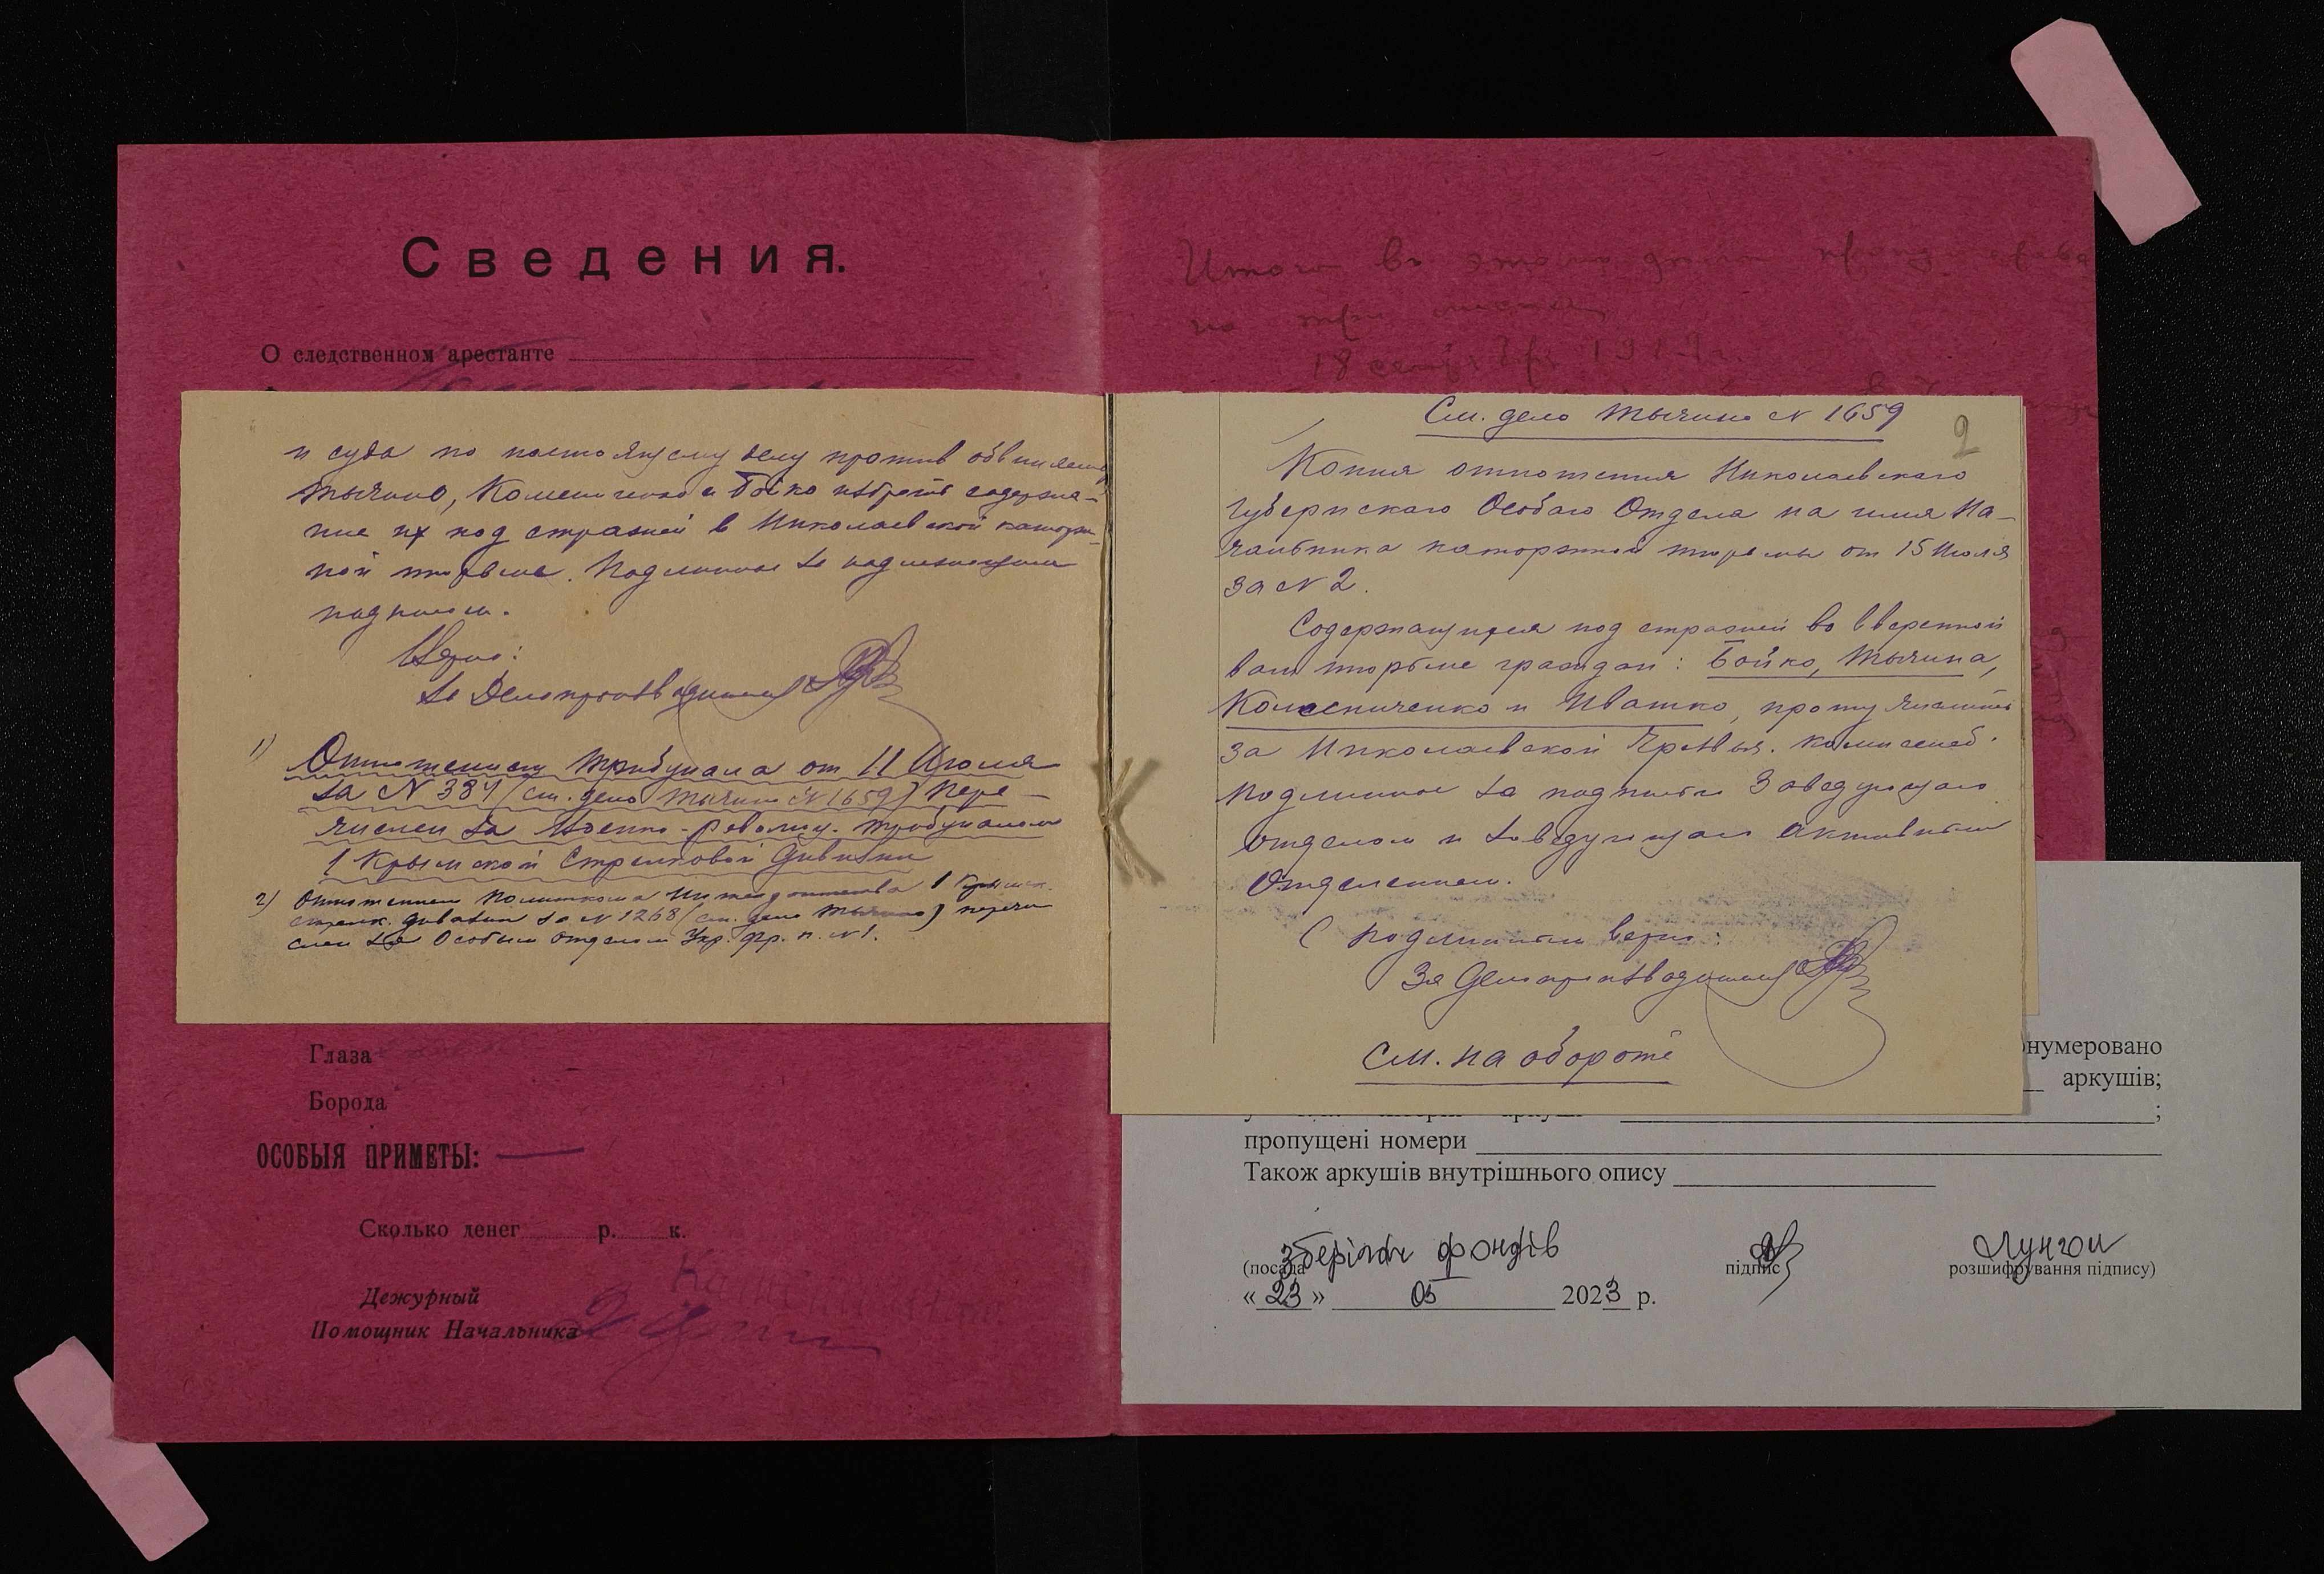 Сведения.
О следственном арестанте
и суда по настоящему делу против обвиняемых
Тычино, Колесниченко и Бойко избрать содержа-
ние их под стражей в Николаевской каторж-
ной тюрьме. Подлинное за надлежащими
подписями.
Верно:
За Делопроизводителя
1) Отношением Трибунала от 11 Июля
за № 384 (см. дело Тычино № 1659) пере-
числен за Военно-революц. трибуналом
1 Крымской Стрелковой дивизии
2) Отношением Политкома 1 Крымск.
стрелк. дивизии за № 1268 (см. дело Тычино) перечи
слен за Особым отделом Укр. фр. п. № 1.
Глаза
Борода
ОСОБЫЯ ПРИМЕТЫ: —
Сколько денег р. к.
Дежурный
Помощник Начальника
Итого в этом деле
на три
18 сентября 1919 г.
2
См. дело Тычино № 1659
Копия отношения Николаевского
Губернского Особаго Отдела на имя На-
чальника каторжной тюрьмы от 15 Июля
за № 2.
Содержащихся под стражей во вверенной
вам тюрьме граждан: Бойко, Тычина,
Колесниченко и Ивашко, прошу числить
за Николаевской Чрезвыч. комиссией.
Подлинное за подписью Заведующаго
отделом и Заведующаго активным
Отделением.
С подлинным верно:
За Делопроизводителя
См. на обороте
онумеровано
аркушів;
;
пропущені номери
Також аркушів внутрішнього опису
зберігач фондів
(посада підпис розшифрування підпису)
« 23 » 05 2023 р.